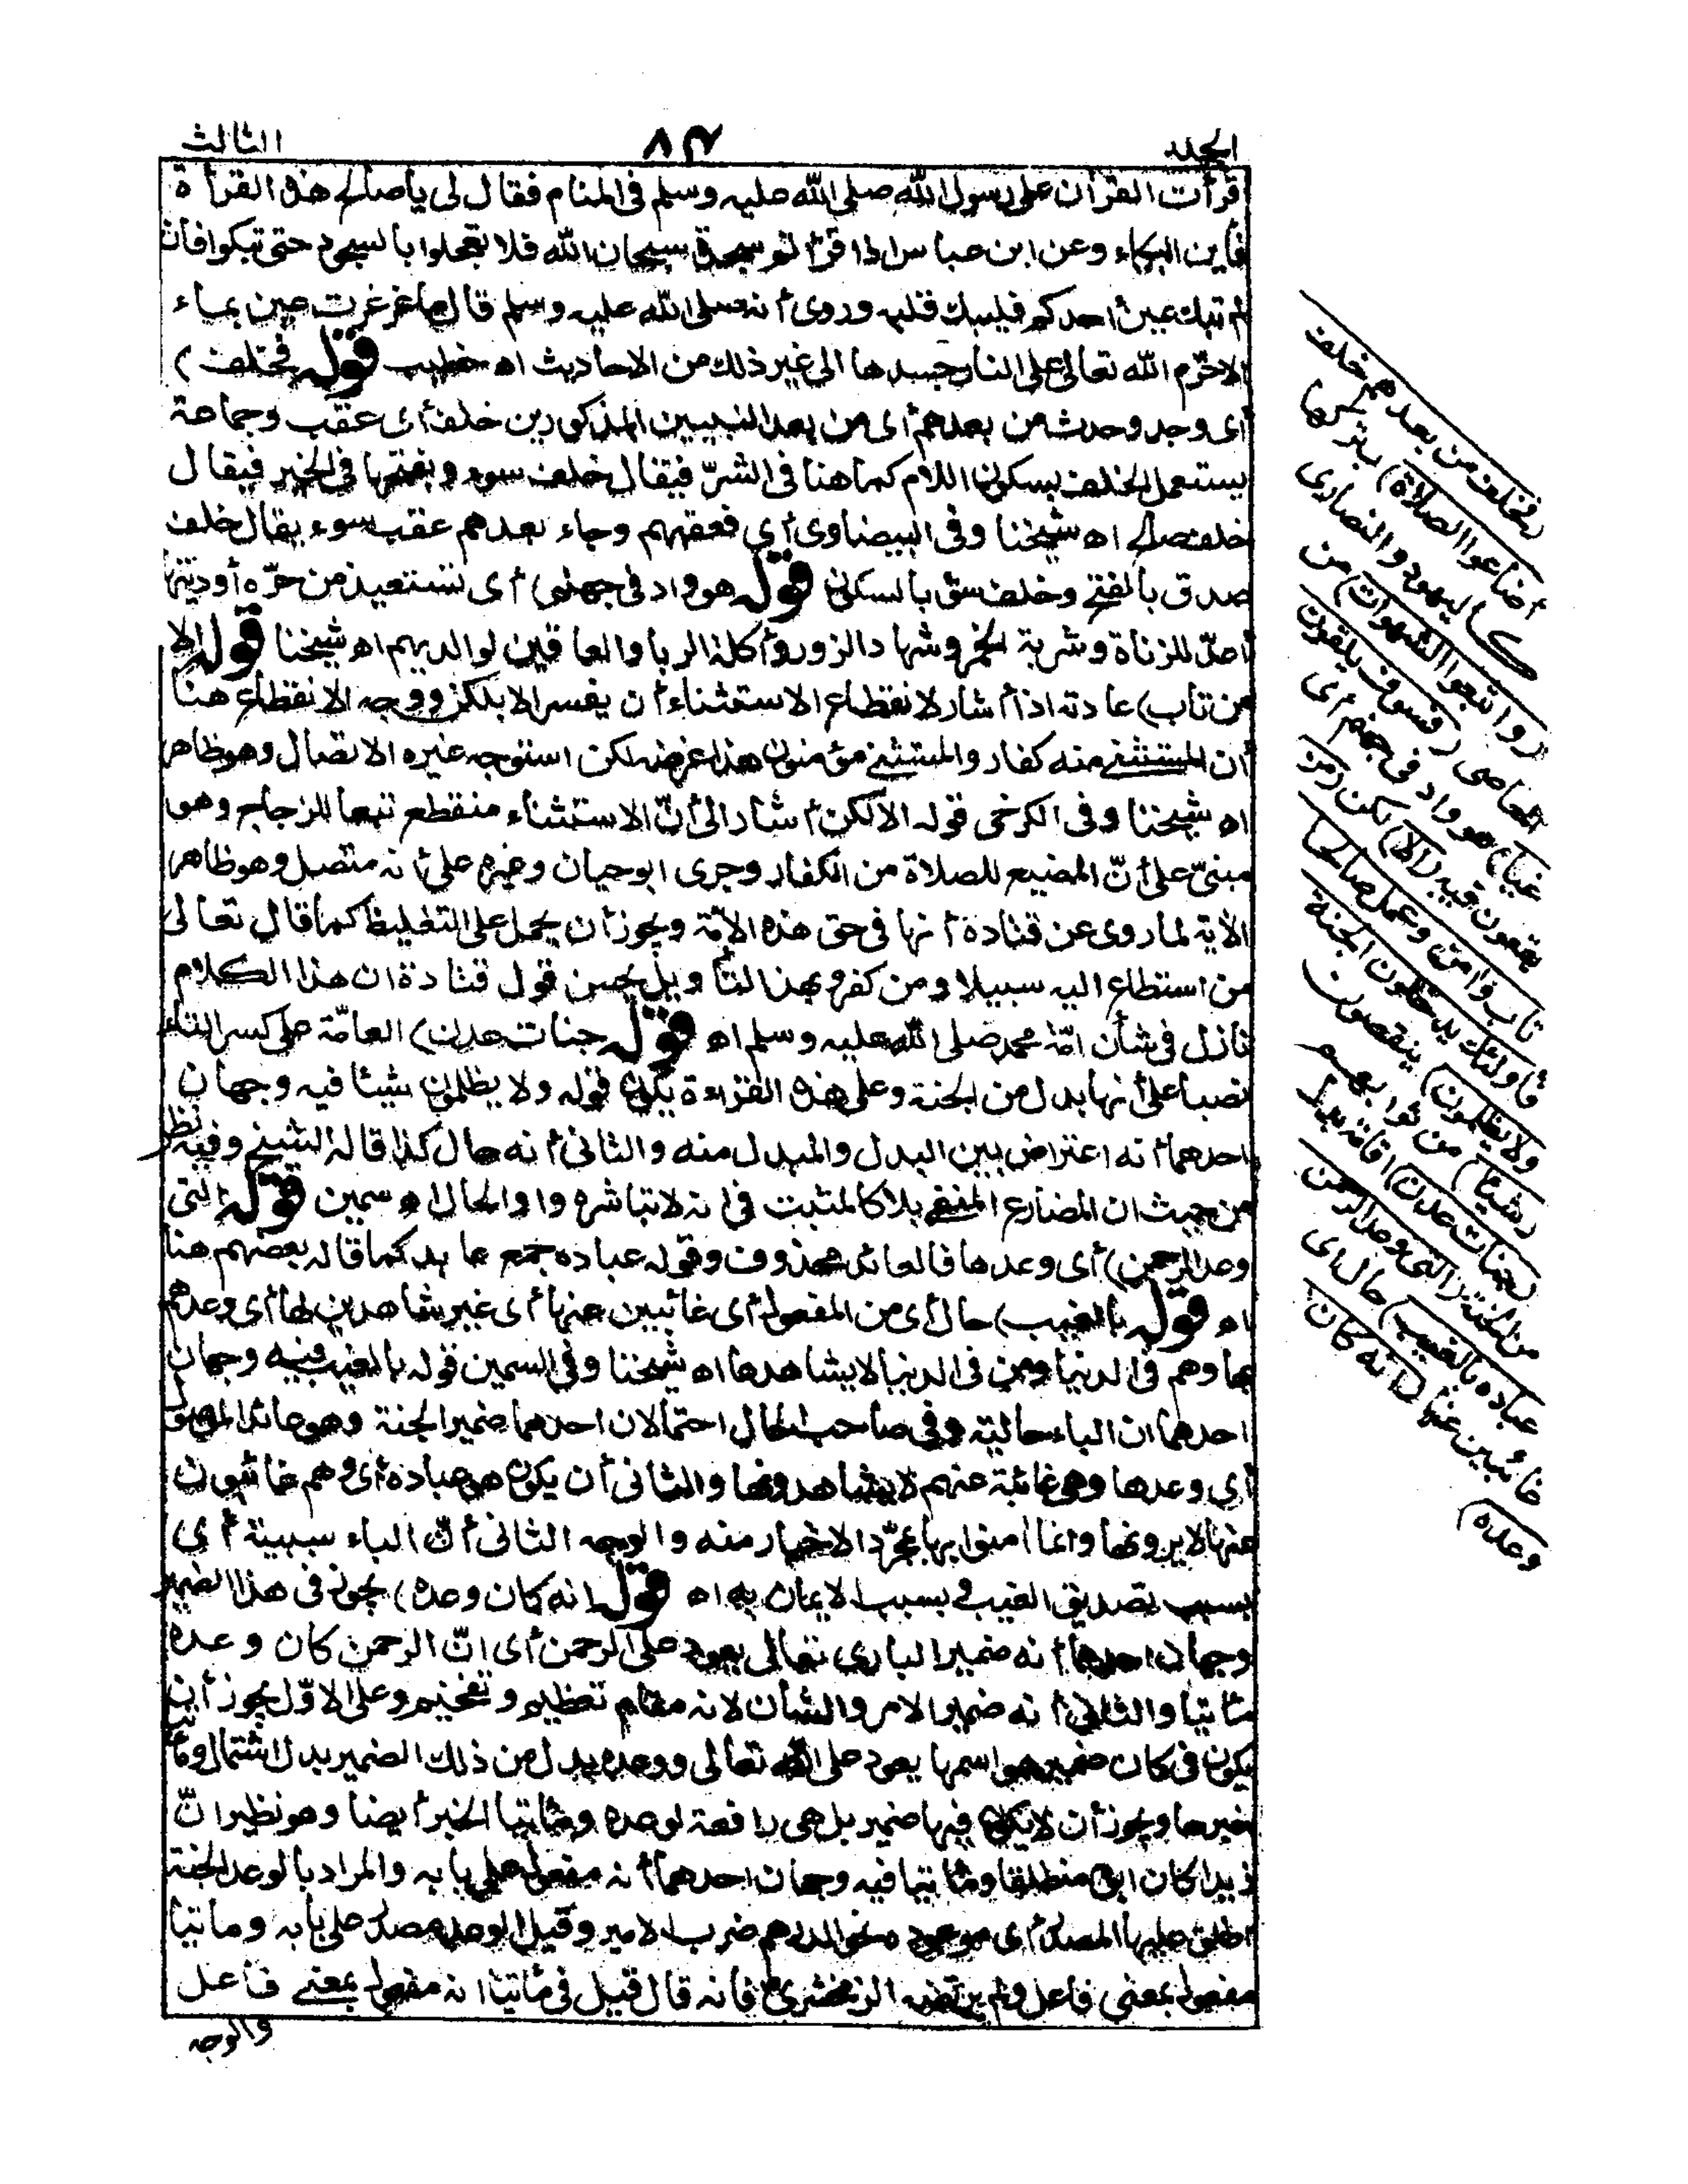 الجلد
٨٣
الثالث
قرأت القرأن على رسول الله صلى الله عليه وسلم فى المنام فقال لى يا صالح هذه القرأة
فأين البكاء وعن ابن عباس اذا قرأتم سجدة سبحان الله فلا تعجلوا بالسجود حتى تبكوا فان
لم تبك عين أحدكم فليبك قلبه وروى أنه صلى الله عليه وسلم قال ما غرغرت عين بماء
الا حرّم الله تعالى على النار جسدها الى غير ذلك من الاحاديث اه خطيب قوله فخلف)
أى وجد وحدث من بعدهم أى من بعد النبيين المذكورين خلف أى عقب وجماعة
يستعمل الخلف بسكون اللام كما هنا فى الشرّ فيقال خلف سوء وبفتحها فى الخير فيقال
خلف صالح اه شيخنا وفى البيضاوى أي فعقبهم وجاء بعدهم عقب سوء يقال خلف
صدق بالفتح وخلف سوء بالسكون قوله هو واد فى جهنم) أى تستعيذ من حرّه أوديتها
أعدّ للزناة وشربة الخمر وشهاد الزور وأكلة الربا والعاقين لوالديهم اه شيخنا قوله الا
من تاب) عادته اذا أشار لانقطاع الاستثناء أن يفسر الا بلكن ووجه الانقطاع هنا
أن المستثنى منه كفار والمستثنى مؤمنون هذا غرضه لكن استوجه غيره الاتصال وهو ظاهر
اه شيخنا وفى الكرخى قوله الا لكن أشار الى أنّ الاستثناء منقطع تبعا للزجاج وهو
مبنىّ على أنّ المضيع للصلاة من الكفار وجرى ابو حيان وغيره على أنه متصل وهو ظاهر
الأية لما روى عن قتادة أنها فى حق هذه الأمّة ويجوز أن يحمل على التغليظ كما قال تعالى
من استطاع اليه سبيلا ومن كفر وبهذا التأويل يحسن قول قتادة ان هذا الكلام
نازل فى شأن امّة محمد صلى الله عليه وسلم اه قوله جنات عدن) العامّة على كسر التاء
نصبا على أنها بدل من الجنة وعلى هذه القراءة يكون قوله ولا يظلمون شيئا فيه وجهان
احدهما أنه اعتراض بين البدل والمبدل منه والثانى أنه حال كذا قاله الشيخ وفيه نظر
من حيث ان المضارع المنفى بلا كالمثبت فى أنه لا تباشره واو الحال اه سمين قوله التى
وعد الرحمن) أى وعدها فالعائد محذوف وقوله عباده جمع عابد كما قاله بعضهم هنا
اه قوله بالغيب) حال أى من المفعول أى غائبين عنها أى غير شاهدين لها أى وعدهم
بها وهم فى الدنيا ومن فى الدنيا لا يشاهدها اه شيخنا وفى السمين قوله بالغيب فيه وجهان
احدهما ان الباء حالية وفى صاحب الحال احتمالان احدهما ضمير الجنة وهو عائد الموصول
أي وعدها وهى غائبة عنهم لا يشاهدونها والثانى أن يكون هو عباده أى وهم غائبون
عنها لا يرونها وانما أمنوا بها بمجرّد الاخبار منه والوجه الثانى أنّ الباء سببية أي
بسبب تصديق الغيب وبسبب الايمان به اه قوله انه كان وعده) يجوز فى هذا الضمير
وجهان احدهما أنه ضمير الباري تعالى يعود على الرحمن أى انّ الرحمن كان وعده
مأتيا والثانى أنه ضمير الامر والشأن لانه مقام تعظيم وتفخيم وعلى الاوّل يجوز أن
يكون فى كان ضمير هو اسمها يعود على الله تعالى ووعده بدل من ذلك الضمير بدل اشتمال ومأتيا
خبرها ويجوز أن لا يكون فيها ضمير بل هى رافعة لوعده ومأتيا الخبر أيضا وهو نظير انّ
زيدا كان ابوه منطلقا ومأتيا فيه وجهان احدهما أنه مفعول على بابه والمراد بالوعد الجنة
اطلق عليها المصدر أى موعوده نحو الدرهم ضرب الامير وقيل الوعد مصدر على بابه ومأتيا
مفعول بمعنى فاعل ولم يرتضه الزمخشري فانه قال قيل فى مأتيا انه مفعول بمعنى فاعل
والوجه
(فخلف من بعدهم خلف
أضاعوا الصلاة) بتركها
كاليهود والنصارى
(واتبعوا الشهوات) من
المعاصى (فسوف يلقون
غيا) هو واد فى جهنم أى
يقعون فيه (الا) لكن (من
تاب وأمن وعمل صالحا
فأولئك يدخلون الجنة
ولا يظلمون) ينقصون
(شيئا) من ثوابهم
(جنات عدن) اقامة بدل
من الجنة (التى وعد الرحمن
عباده بالغيب) حال أى
غائبين عنها (انه كان
وعده)